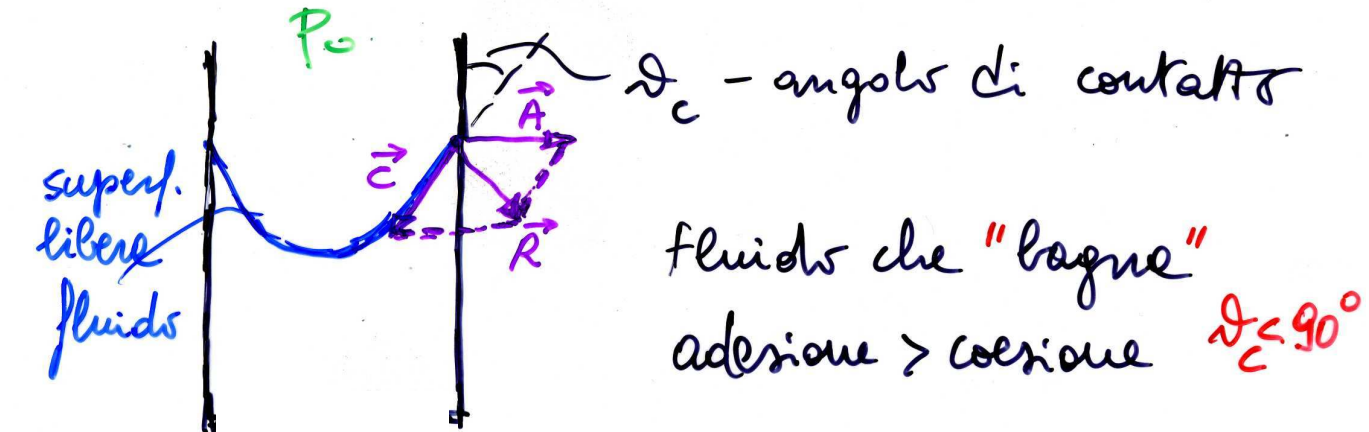 P₀
ϑ_c - angolo di contatto
A⃗
C⃗
R⃗
superf.
libera
fluido
fluido che "bagna"
adesione > coesione ϑ_c < 90°